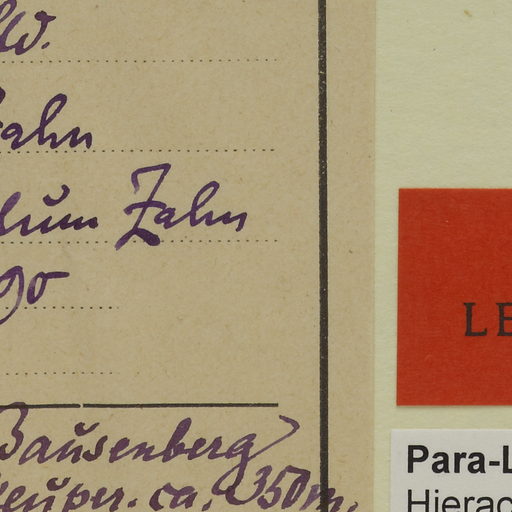 Zahn
lum Zahn
90
LE
Bausenberg
Keuper. ca. 350 m.
Para-L
Hierac